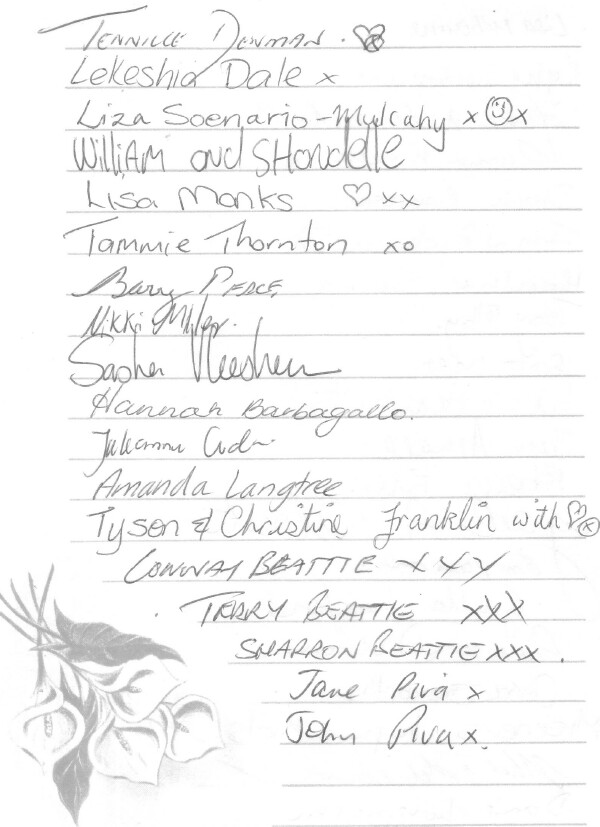 Tennille Denman.
Lekeshia Dale x
Liza Soenario-Mulcahy x x
William and SHondelle
Lisa Monks xx
Tammie Thornton xo
Barry PEACE
Nikki Miller.
Sasha
Hannah Barbagallo.
Julieanne
Amanda Langtree
Tyson & Christine Franklin with
CONWAY BEATTIE XXX
TERRY BEATTIE XXX
SHARRON BEATTIE XXX.
Jane Piva x
John Piva x.